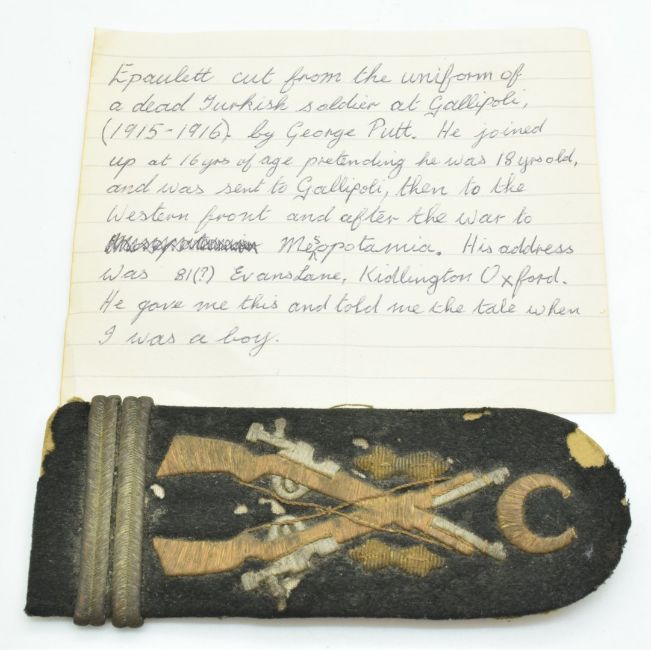 Epaulett cut from the uniform of
a dead Turkish soldier at Gallipoli,
(1915-1916). by George Putt. He joined
up at 16 yrs of age pretending he was 18 yrs old,
and was sent to Gallipoli, then to the
Western front and after the war to
Mesopotamia. His address
was 81(?) Evans Lane, Kidlington Oxford.
He gave me this and told me the tale when
I was a boy.